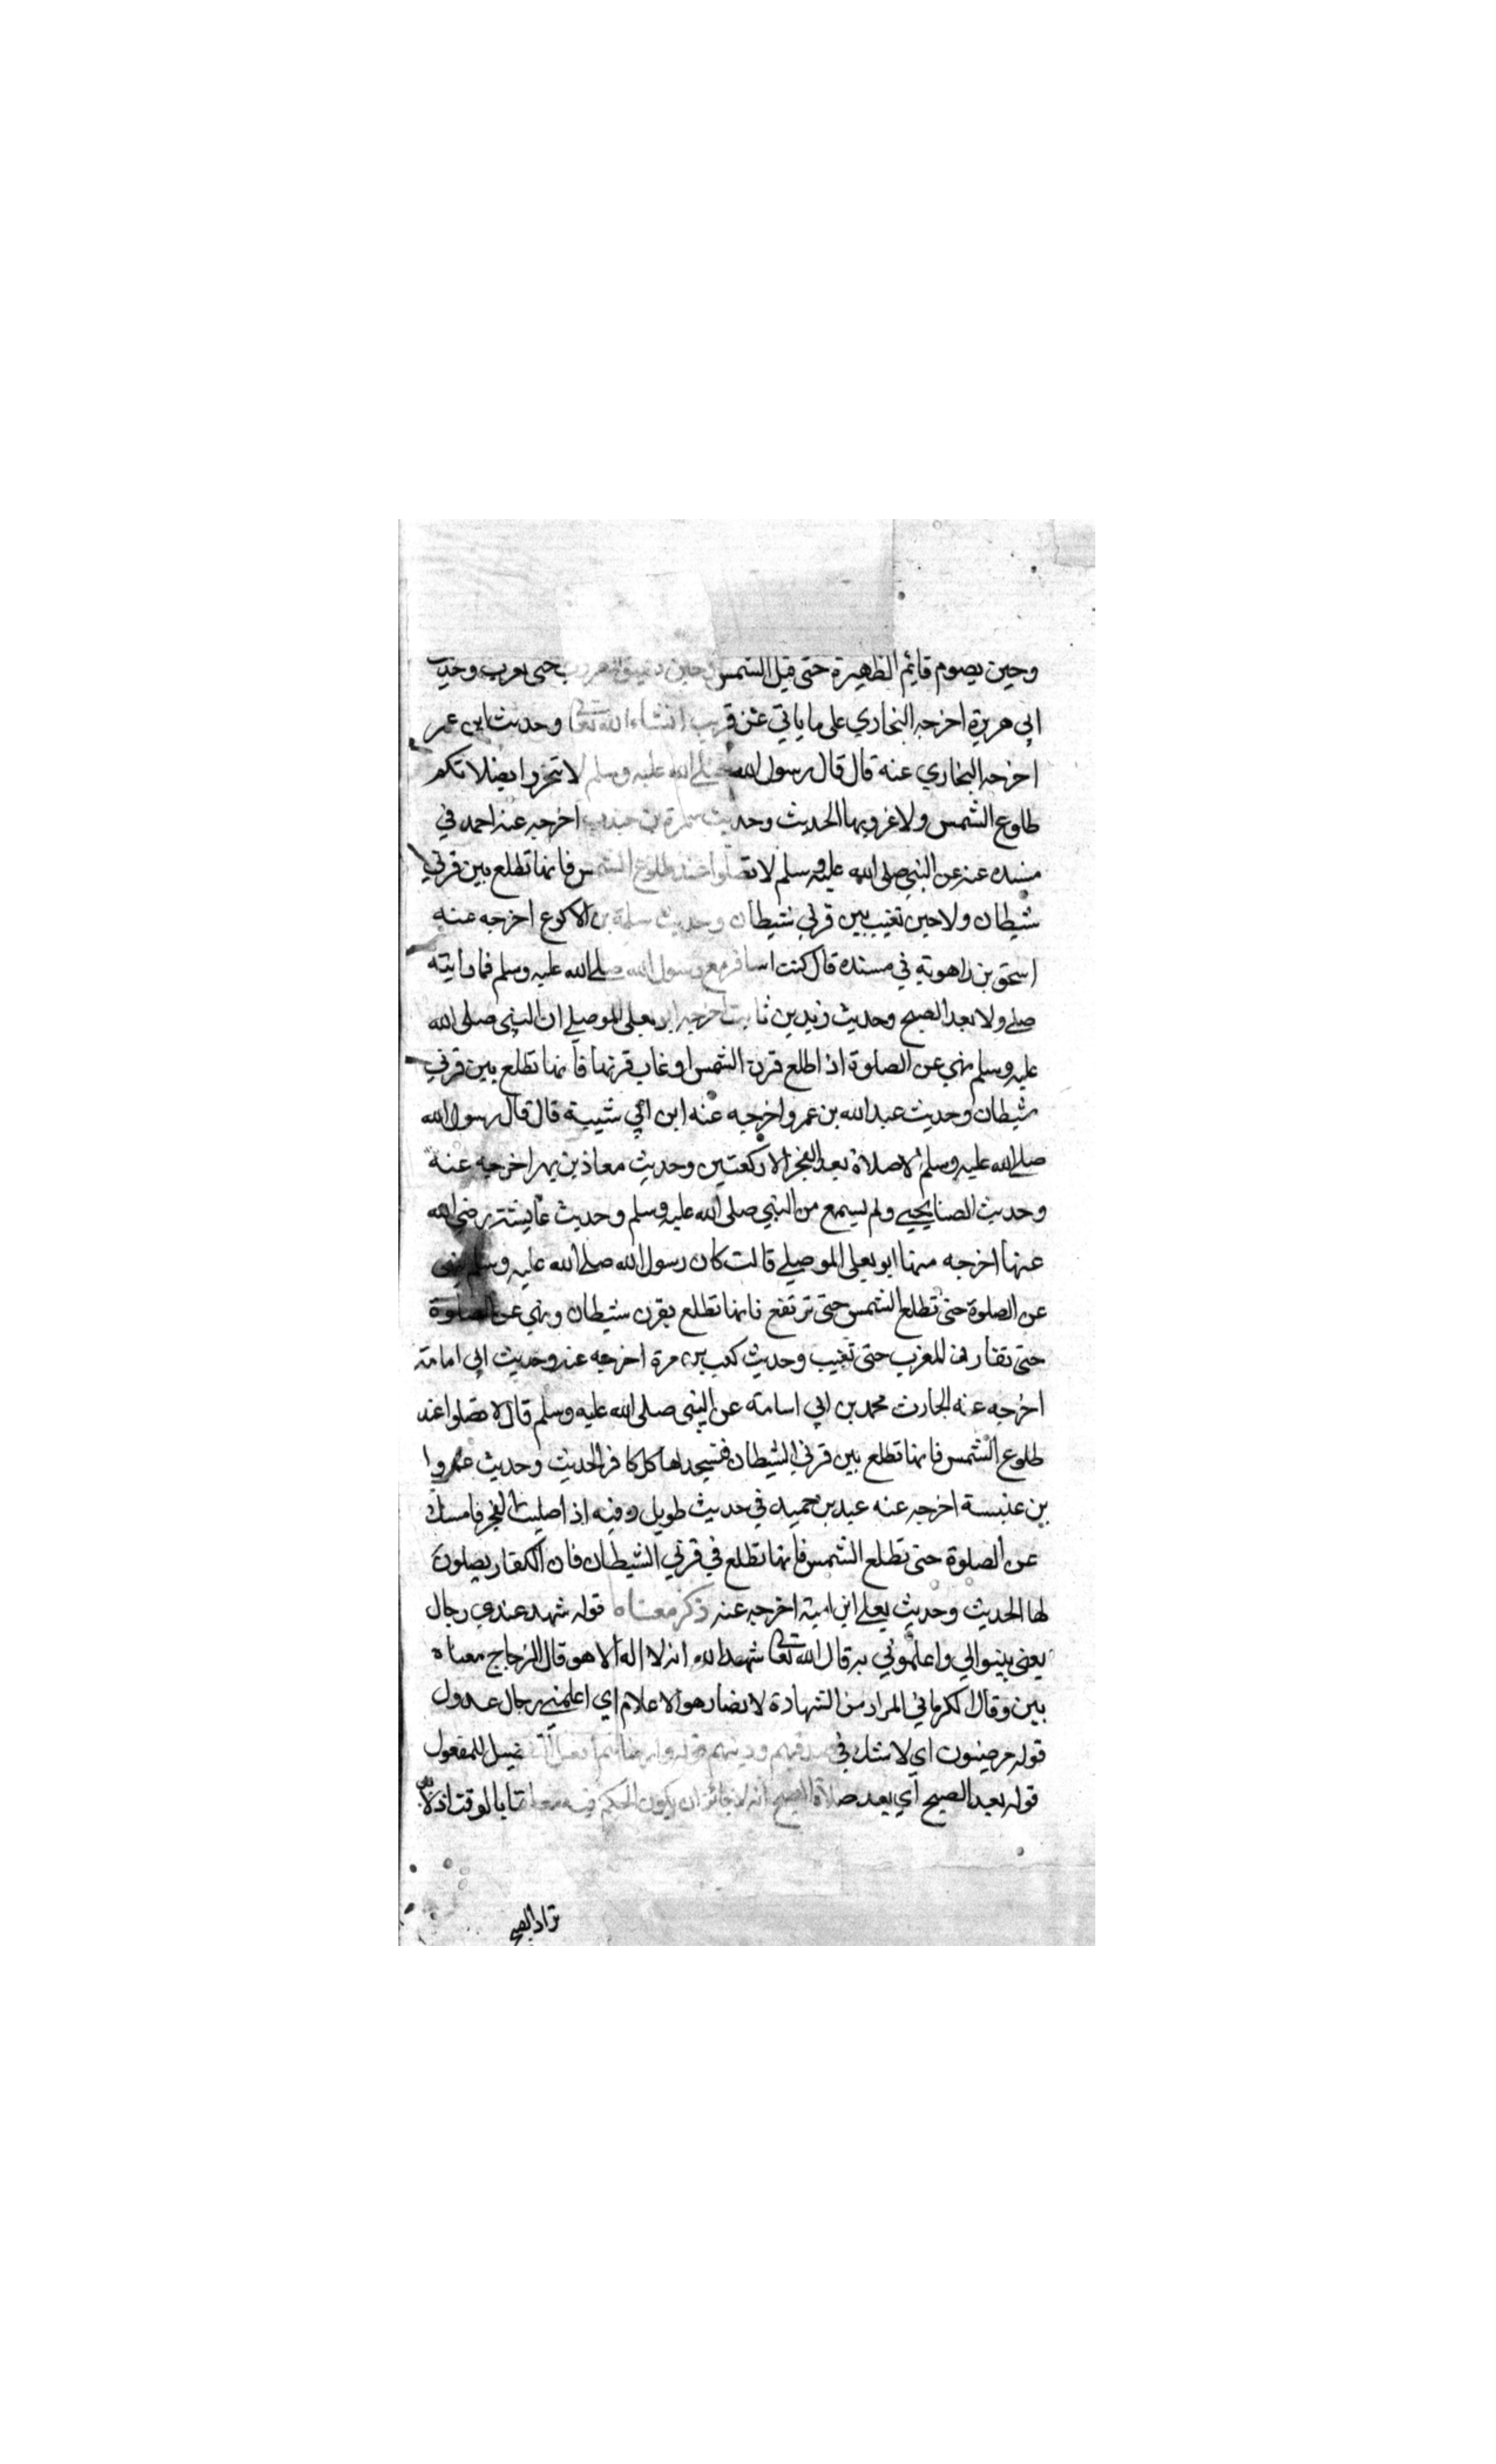 وحين يصوم قايم الظهيرة حتى تميل الشمس وحين تضيق للغروب حتى تغرب وحديث
ابي هريرة اخرجه البخاري على ما ياتي عن قريب انشاء الله تعالى وحديث ابن عمر
اخرجه البخاري عنه قال قال رسول الله صلى الله عليه وسلم لا تتحروا بصلاتكم
طلوع الشمس ولا غروبها الحديث وحديث سمرة بن جندب اخرجه عنه احمد في
مسنده عنه عن النبي صلى الله عليه وسلم لا تصلوا عند طلوع الشمس فانها تطلع بين قرني
شيطان ولا حين تغيب بين قرني شيطان وحديث سلمة بن الاكوع اخرجه عنه
اسحق بن راهويه في مسنده قال كنت اسافر مع رسول الله صلى الله عليه وسلم فما رايته
صلى ولا بعد الصبح وحديث زيد بن ثابت اخرجه ابو يعلى الموصلي ان النبي صلى الله
عليه وسلم نهي عن الصلوة اذا طلع قرن الشمس او غاب قرنها فانها تطلع بين قرني
شيطان وحديث عبد الله بن عمرو اخرجه عنه ابن ابي شيبة قال قال رسول الله
صلى الله عليه وسلم لا صلاة بعد الفجر الا ركعتين وحديث معاذ بن اخرجه عنه
وحديث الصنابحي ولم يسمع من النبي صلى الله عليه وسلم وحديث عايشة رضي الله
عنها اخرجه منها ابو يعلى الموصلي قالت كان رسول الله صلى الله عليه وسلم ينهى
عن الصلوة حتى تطلع الشمس حتى ترتفع فانها تطلع بقرن شيطان وينهي عن الصلوة
حتى تقارب للغرب حتى تغيب وحديث كعب بن مرة اخرجه عنه وحديث ابي امامة
اخرجه عنه الحارث محمد بن ابي اسامة عن النبي صلى الله عليه وسلم قال لا تصلوا عند
طلوع الشمس فانها تطلع بين قرني الشيطان فيسجد لها كل كافر الحديث وحديث عمروا
بن عنبسة اخرجه عنه عبد بن حميد في حديث طويل وفيه اذا صليت الفجر فامسك
عن الصلوة حتى تطلع الشمس فانها تطلع في قرني الشيطان فان الكفار يصلون
لها الحديث وحديث يعلى ابن امية اخرجه عنه ذكر معناه قوله شهد عندي رجال
يعني بينوا لي واعلموني به قال الله تعالى شهد الله انه لا اله الا هو قال الزجاج معناه
بين وقال الكرماني المراد من الشهادة لا بضار هو الاعلام اي اعلمني رجال عدول
قوله مرضيون اي لا شك في صدقهم ودينهم قوله وارضاهم افعل التفضيل للمفعول
قوله بعد الصبح اي بعد صلاة الصبح انه لا جائز ان يكون الحكم فيه معلقا بالوقت اذ لا